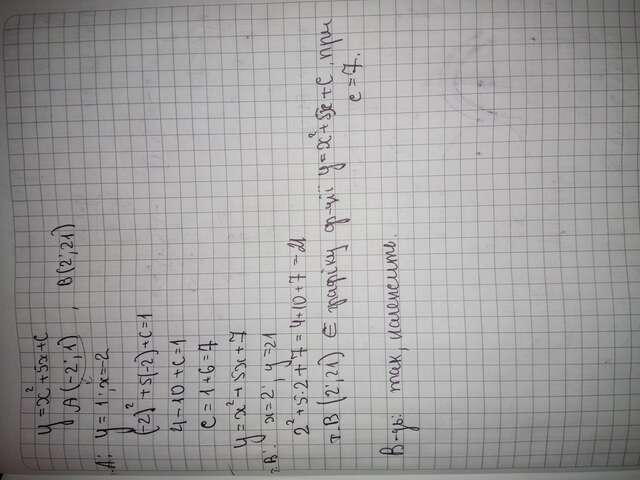 y = x² + 5x + c
A (-2; 1) , B (2; 21)
т.A: y = 1; x = -2
(-2)² + 5(-2) + c = 1
4 - 10 + c = 1
c = 1 + 6 = 7
y = x² + 5x + 7
т.B: x = 2; y = 21
2² + 5·2 + 7 = 4 + 10 + 7 = 21
т.B (2; 21) ∈ графіку ф-ції y = x² + 5x + c, при
c = 7.
В-дь: так, належить.